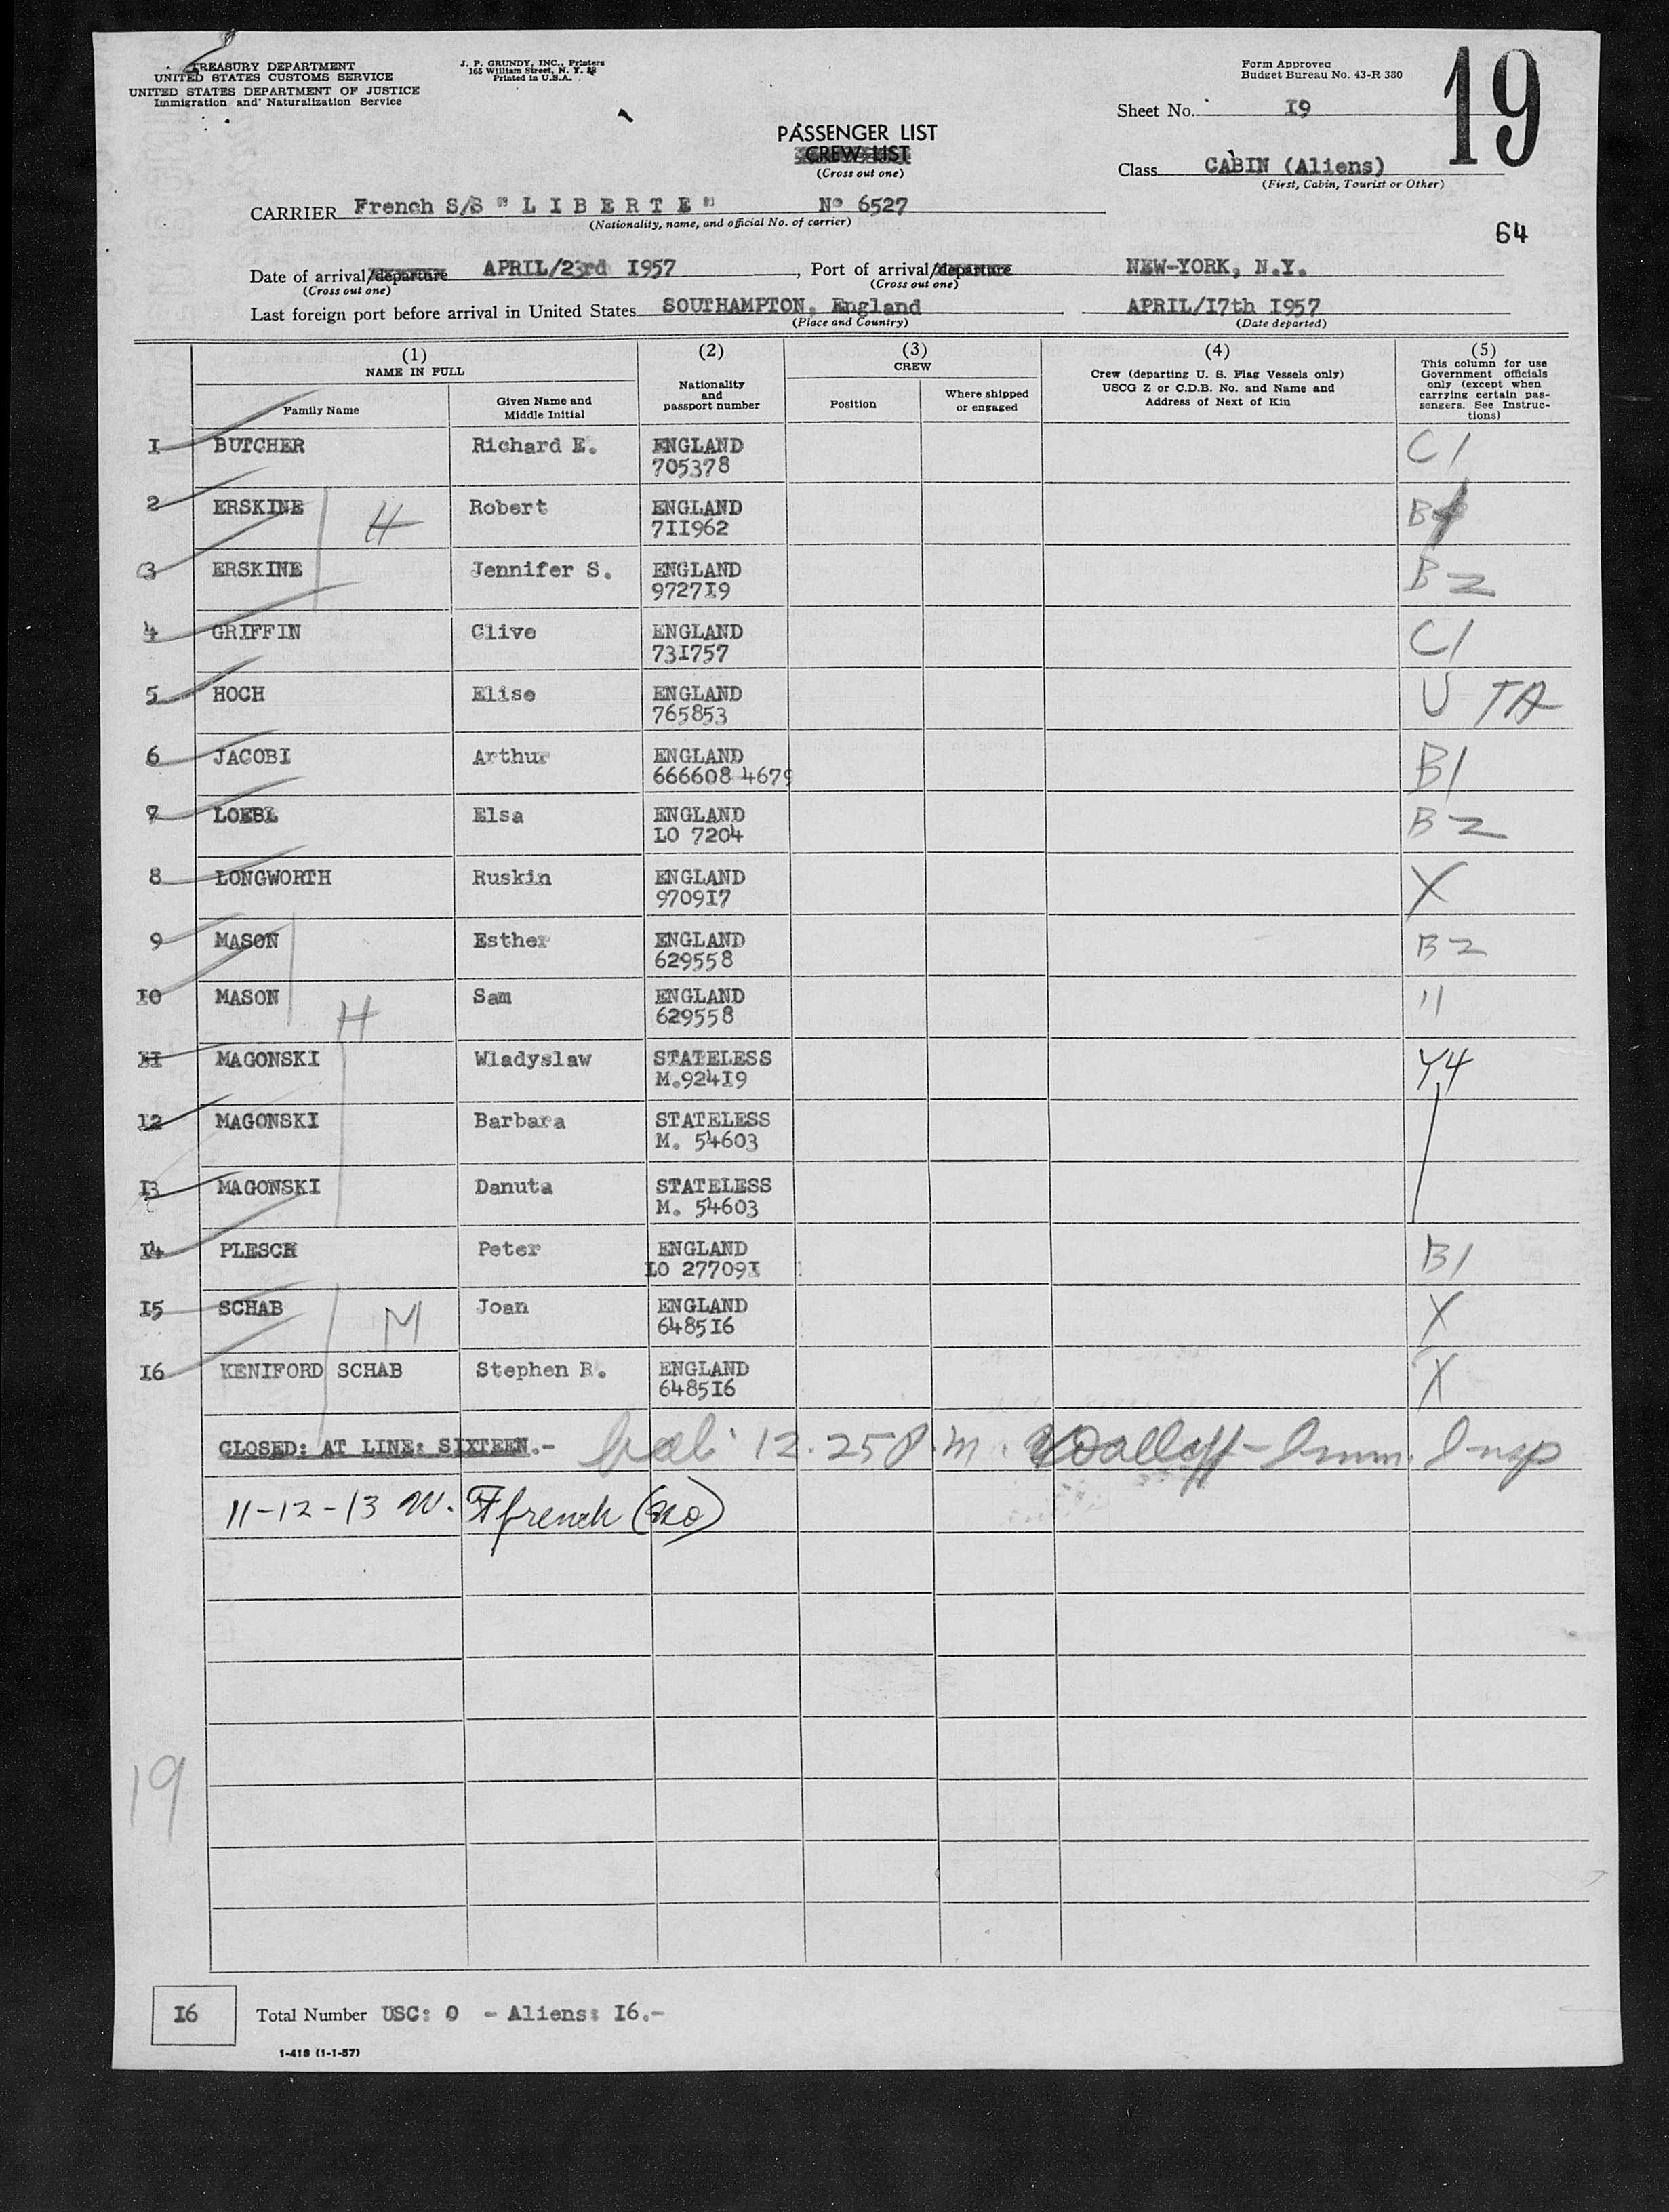 TREASURY DEPARTMENT
UNITED STATES CUSTOMS SERVICE
UNITED STATES DEPARTMENT OF JUSTICE
Immigration and Naturalization Service
J. P. GRUNDY, INC., Printers
165 William Street, N. Y. 38
Printed in U.S.A.
Form Approved
Budget Bureau No. 43-R 380
19
Sheet No. I9
PASSENGER LIST
CREW LIST
(Cross out one)
Class CABIN (Aliens)
(First, Cabin, Tourist or Other)
CARRIER French S/S " L I B E R T E " N° 6527
(Nationality, name, and official No. of carrier)
64
Date of arrival/departure APRIL/23rd I957, Port of arrival/departure NEW-YORK, N.Y.
(Cross out one) (Cross out one)
Last foreign port before arrival in United States SOUTHAMPTON, England APRIL/I7th I957
(Place and Country) (Date departed)
(1) NAME IN FULL
Family Name
Given Name and Middle Initial
(2) Nationality and passport number
(3) CREW
Position
Where shipped or engaged
(4) Crew (departing U. S. Flag Vessels only) USCG Z or C.D.B. No. and Name and Address of Next of Kin
(5) This column for use Government officials only (except when carrying certain passengers. See Instructions)
I BUTCHER Richard E. ENGLAND C1
705378
2 ERSKINE H Robert ENGLAND B
7II962
3 ERSKINE Jennifer S. ENGLAND B2
9727I9
4 GRIFFIN Clive ENGLAND C1
73I757
5 HOCH Elise ENGLAND U TA
765853
6 JACOBI Arthur ENGLAND B1
666608 4679
7 LOEBL Elsa ENGLAND B2
LO 7204
8 LONGWORTH Ruskin ENGLAND X
9709I7
9 MASON Esther ENGLAND B2
629558
I0 MASON H Sam ENGLAND "
629558
II MAGONSKI Wladyslaw STATELESS Y4
M.924I9
I2 MAGONSKI Barbara STATELESS
M. 54603
I3 MAGONSKI Danuta STATELESS
M. 54603
I4 PLESCH Peter ENGLAND B1
LO 27709I
I5 SCHAB M Joan ENGLAND X
6485I6
I6 KENIFORD SCHAB Stephen R. ENGLAND X
6485I6
CLOSED: AT LINE: SIXTEEN.- 12.25 P.m. Imm. Insp
11-12-13 W. Ffrench
19
I6 Total Number USC: 0 - Aliens: I6.-
I-418 (1-1-57)